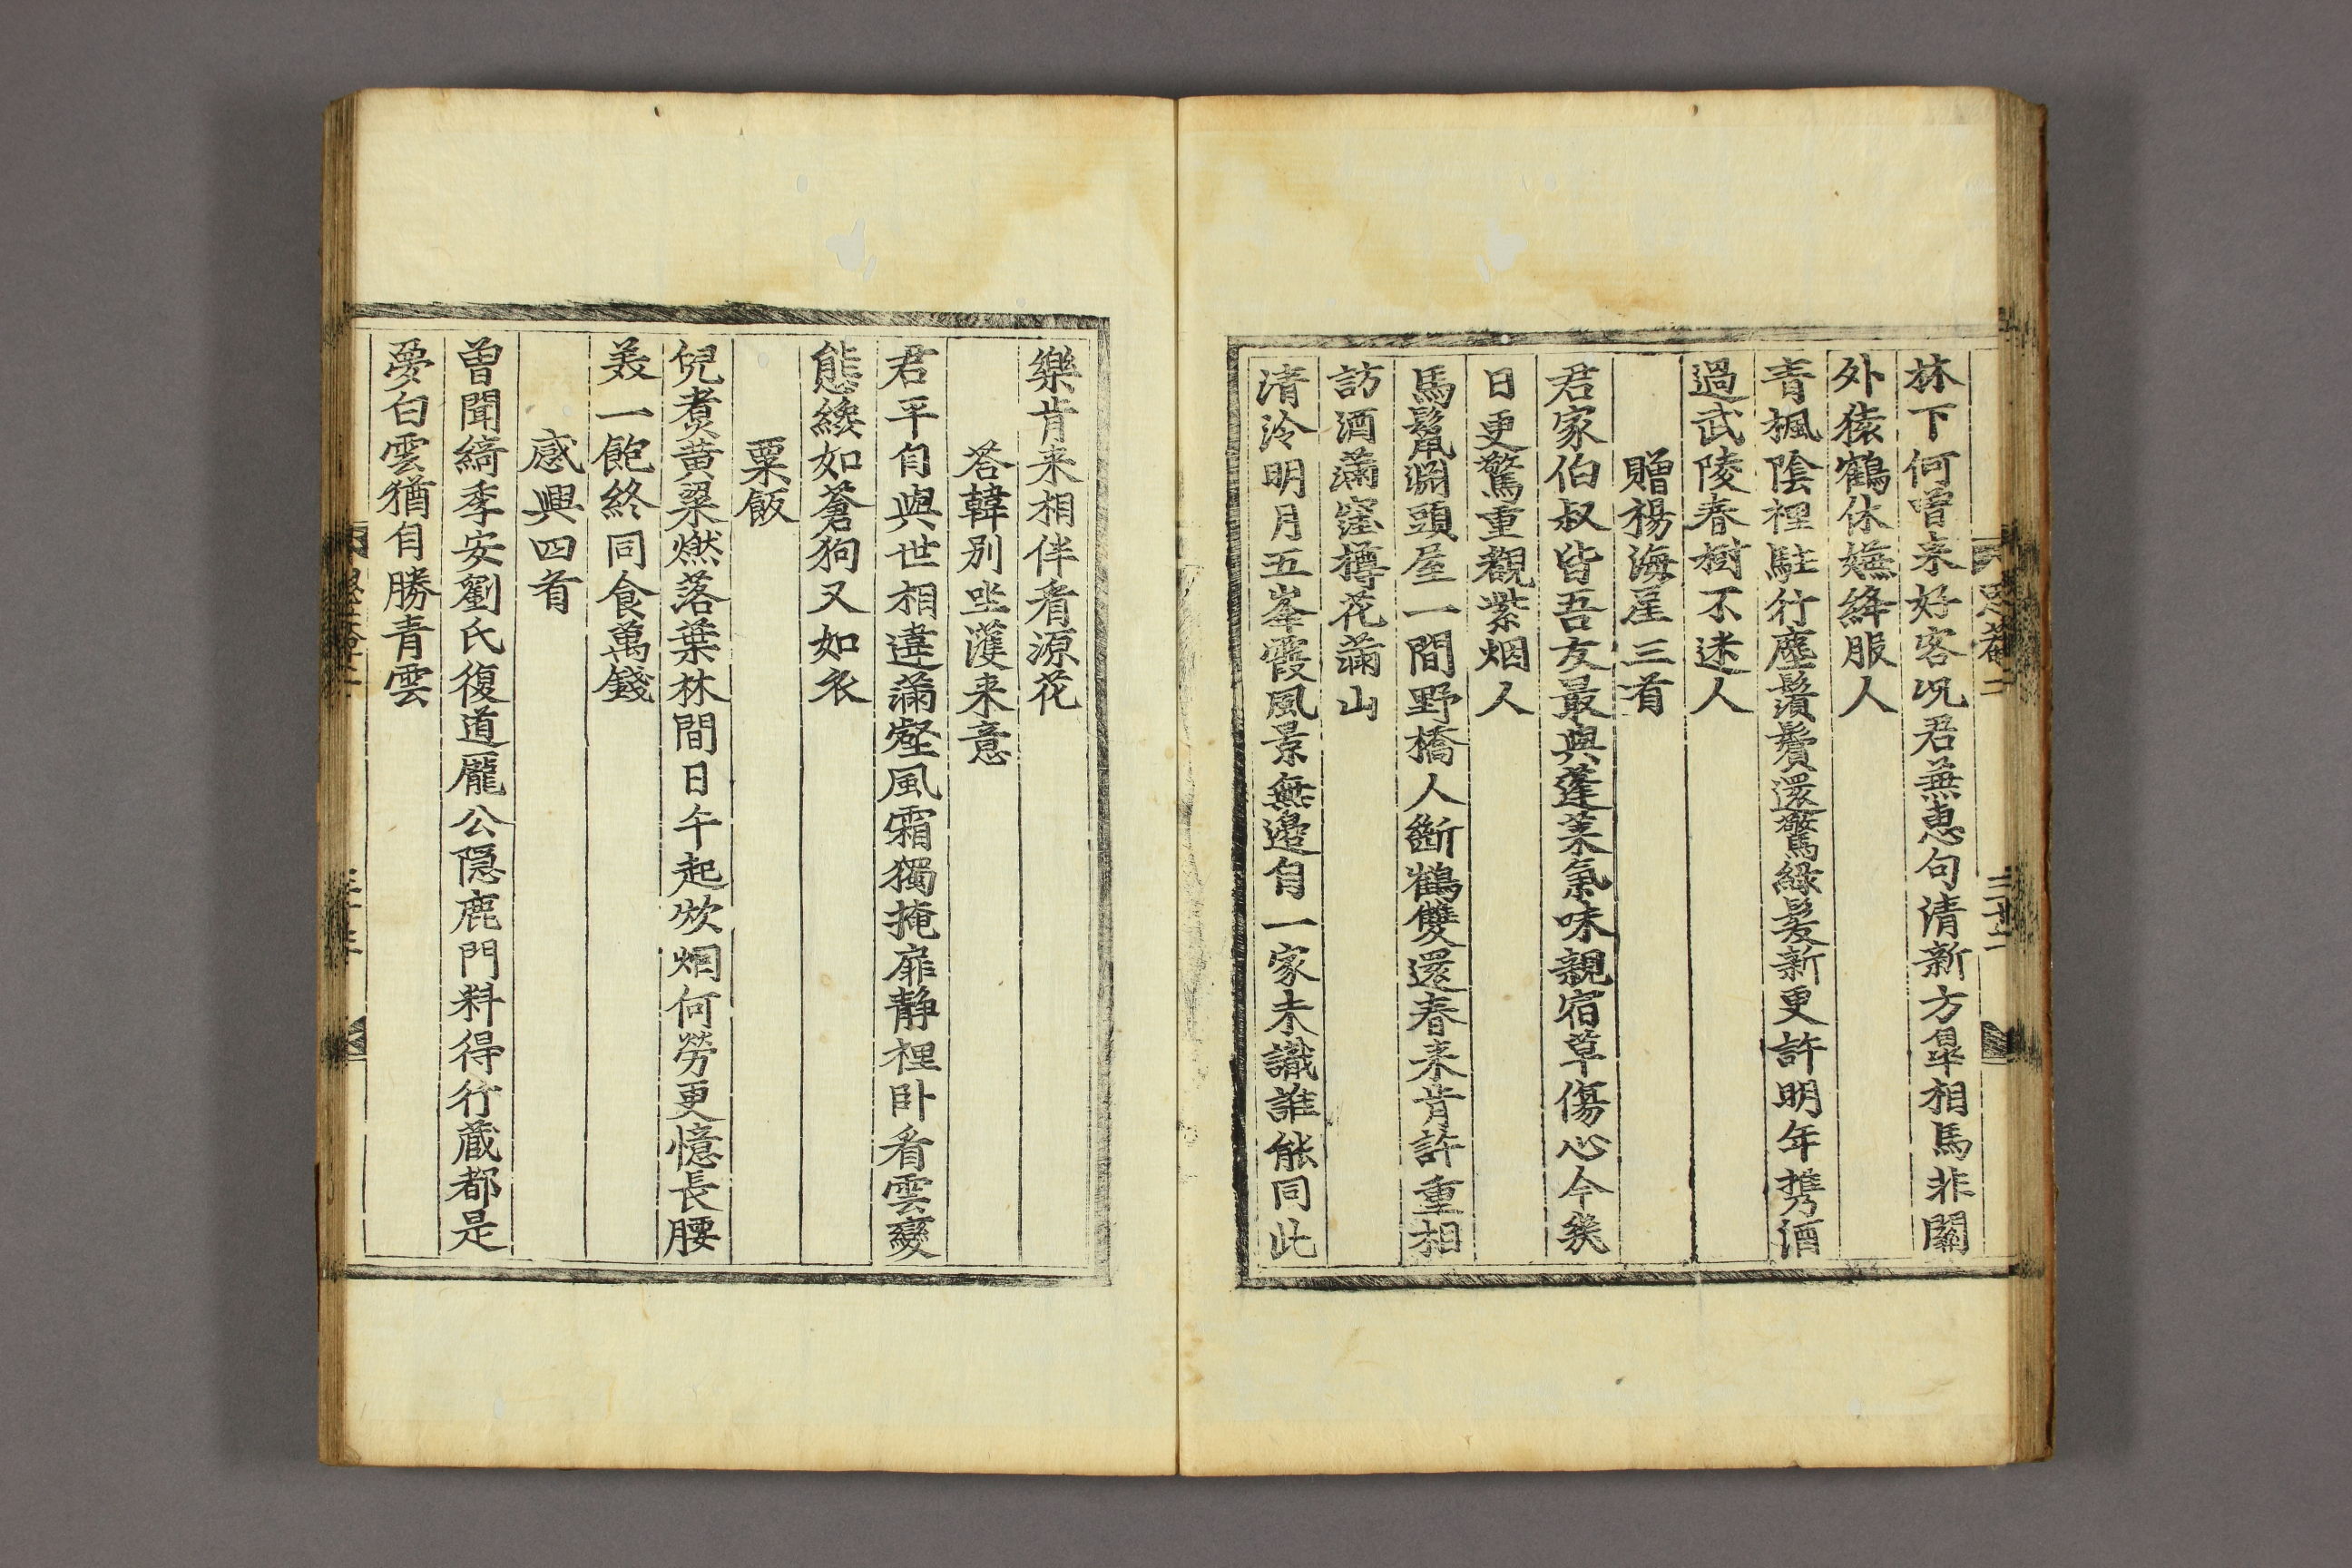 林下何曾来好客况君蕪惠句清新方皐相馬非關
外猿鶴休嫌絳服人
青楓陰裡駐行塵鬚鬢還驚緑髪新更許明年携酒
過武陵春樹不迷人
贈楊海崖三首
君家伯叔皆吾友最與蓬莱氣味親宿草傷心今幾
日更驚重觀紫烟人
馬鬣淵頭屋一間野橋人斷鶴雙還春来肯許重相
訪酒滿窪樽花滿山
清泠明月五峯霞風景無邊自一家未識誰能同此
樂肯来相伴看源花
答韓別坐濩来意
君平自與世相違滿壑風霜獨掩扉静裡卧看雲變
態纔如蒼狗又如衣
粟飯
兒煮黄粱燃落葉林間日午起炊烟何勞更憶長腰
美一飽終同食萬錢
感興四首
曽聞綺季安劉氏復道龐公隠鹿門料得行蔵都是
夢白雲猶自勝青雲